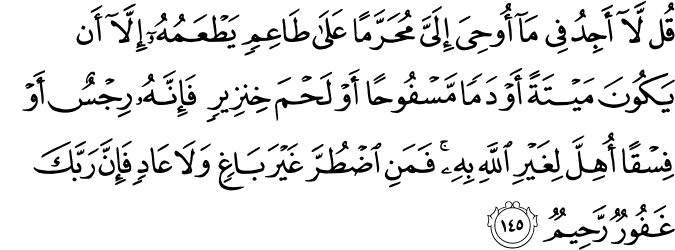 قُل لَّآ أَجِدُ فِى مَآ أُوحِىَ إِلَىَّ مُحَرَّمًا عَلَىٰ طَاعِمٍ يَطْعَمُهُۥٓ إِلَّآ أَن
يَكُونَ مَيْتَةً أَوْ دَمًا مَّسْفُوحًا أَوْ لَحْمَ خِنزِيرٍ فَإِنَّهُۥ رِجْسٌ أَوْ
فِسْقًا أُهِلَّ لِغَيْرِ ٱللَّهِ بِهِۦ ۚ فَمَنِ ٱضْطُرَّ غَيْرَ بَاغٍ وَلَا عَادٍ فَإِنَّ رَبَّكَ
غَفُورٌ رَّحِيمٌ ١٤٥